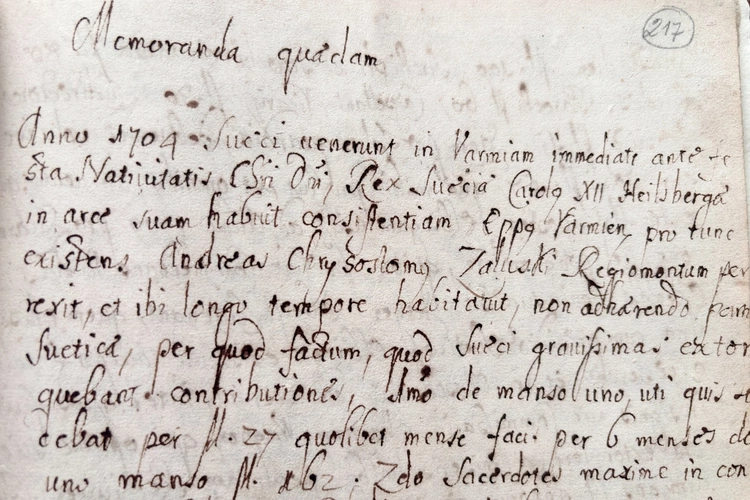 217
Memoranda quædam
Anno 1704 Sueci venerunt in Varmiam immediate ante fe
sta Nativitatis Chri Dni, Rex Sueciæ Carolq XII Heilsbergæ
in arce suam habuit consistentiam Eppq Varmien, pro tunc
existens Andreas Chrysostomq Zaluski Regiomontum per
rexit, et ibi longo tempore habitavit, non adhærendo
Sueticæ, per quod factum, quod Sueci gravissimas extor
quebant contributiones, Imo de manso uno, uti quis
debat per fl. 27 quolibet mense faci. per 6 menses de
uno manso fl. 162. 2do Sacerdotes maxime in con